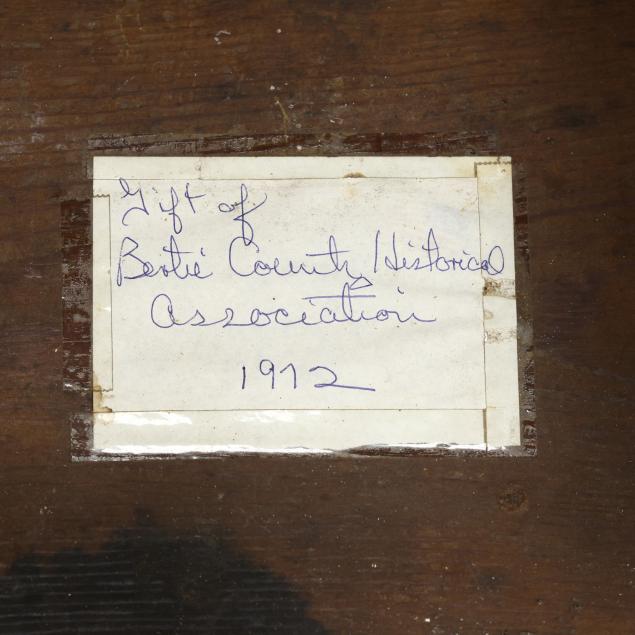 Gift of
Bertie County Historical
Association
1972